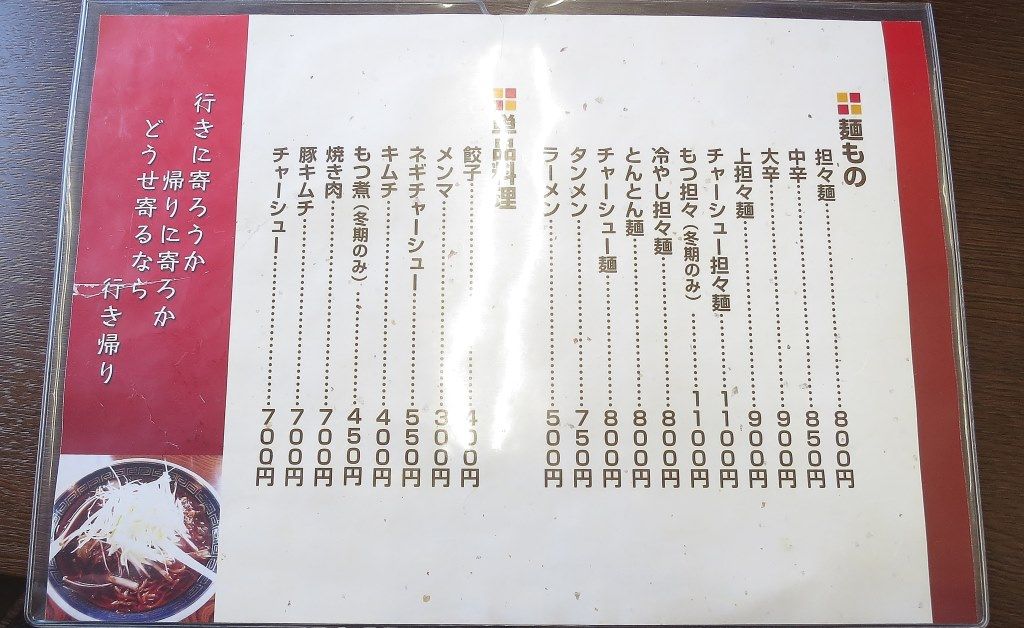 麺もの
担々麺 800円
中辛 850円
大辛 900円
上担々麺 900円
チャーシュー担々麺 1100円
もつ担々(冬期のみ) 1100円
冷やし担々麺 800円
とんとん麺 800円
チャーシュー麺 800円
タンメン 750円
ラーメン 500円
単品料理
餃子 400円
メンマ 300円
ネギチャーシュー 550円
キムチ 400円
もつ煮(冬期のみ) 450円
焼き肉 700円
豚キムチ 700円
チャーシュー 700円
行きに寄ろうか
帰りに寄ろか
どうせ寄るなら
行き帰り